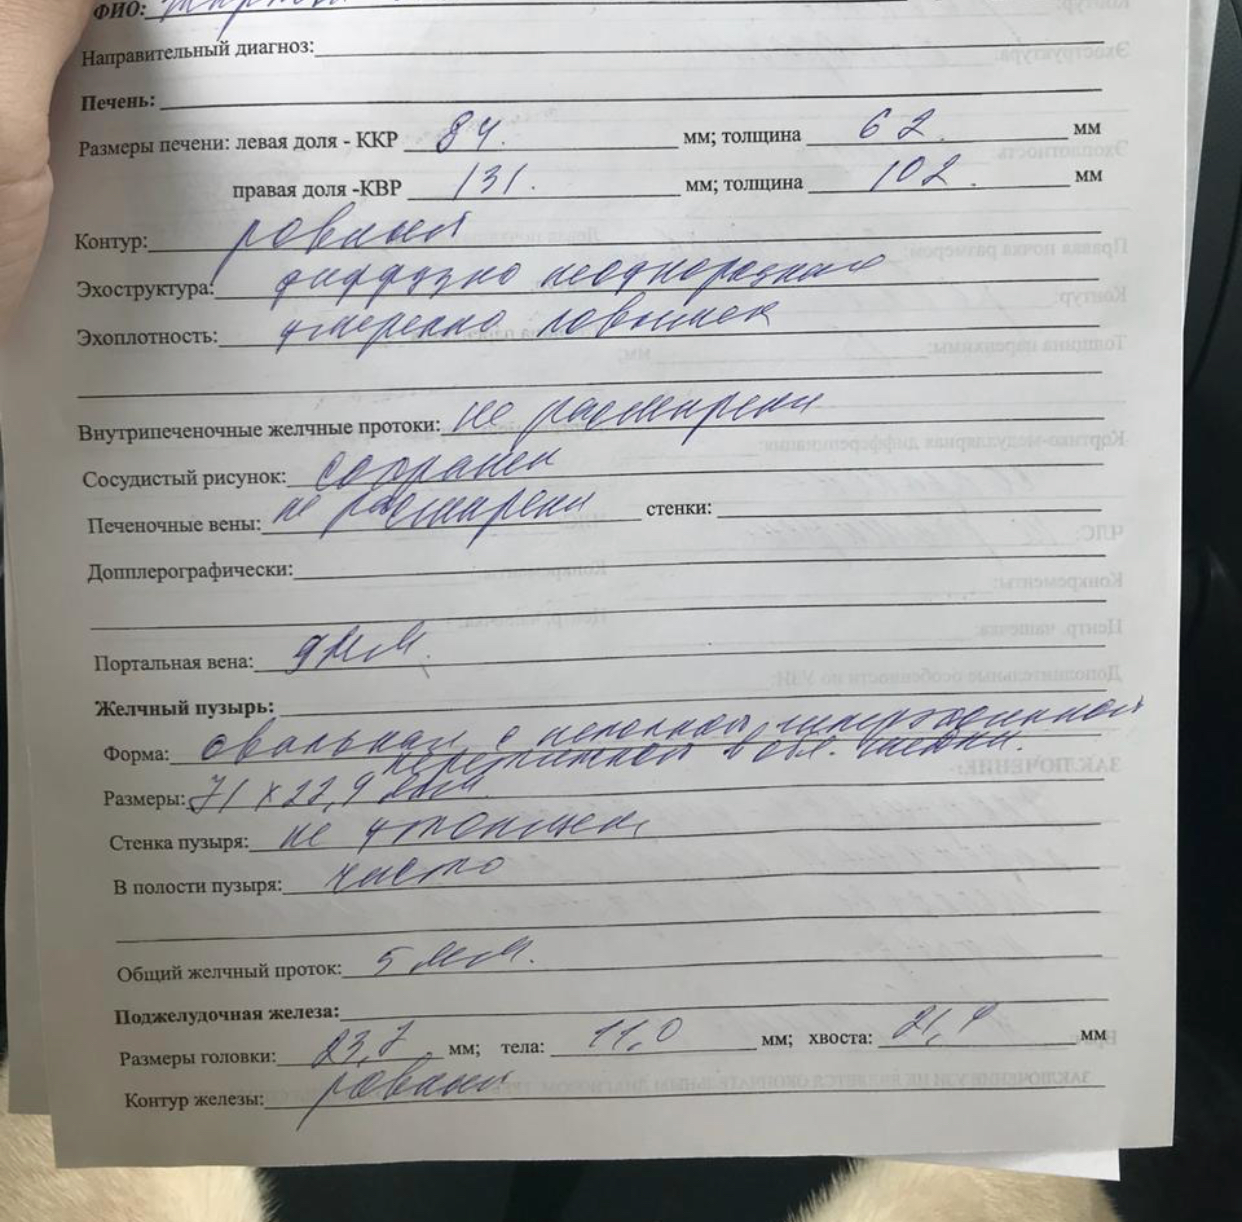 ФИО:
Направительный диагноз:
Печень:
Размеры печени: левая доля - ККР 84. мм; толщина 62. мм
правая доля -КВР 131. мм; толщина 102. мм
Контур: ровный
Эхоструктура: диффузно неоднородная
Эхоплотность: умеренно повышен
Внутрипеченочные желчные протоки: не расширены
Сосудистый рисунок: сохранен
Печеночные вены: не расширены стенки:
Допплерографически:
Портальная вена: 9мм.
Желчный пузырь:
Форма: овальная с неполной гиперэхогенной
перетяжкой в обл. шейки.
Размеры: 71 х 22,9 мм
Стенка пузыря: не утолщен
В полости пузыря: чисто
Общий желчный проток: 5 мм.
Поджелудочная железа:
Размеры головки: 23,7 мм; тела: 11,0 мм; хвоста: 21,4 мм
Контур железы: ровный